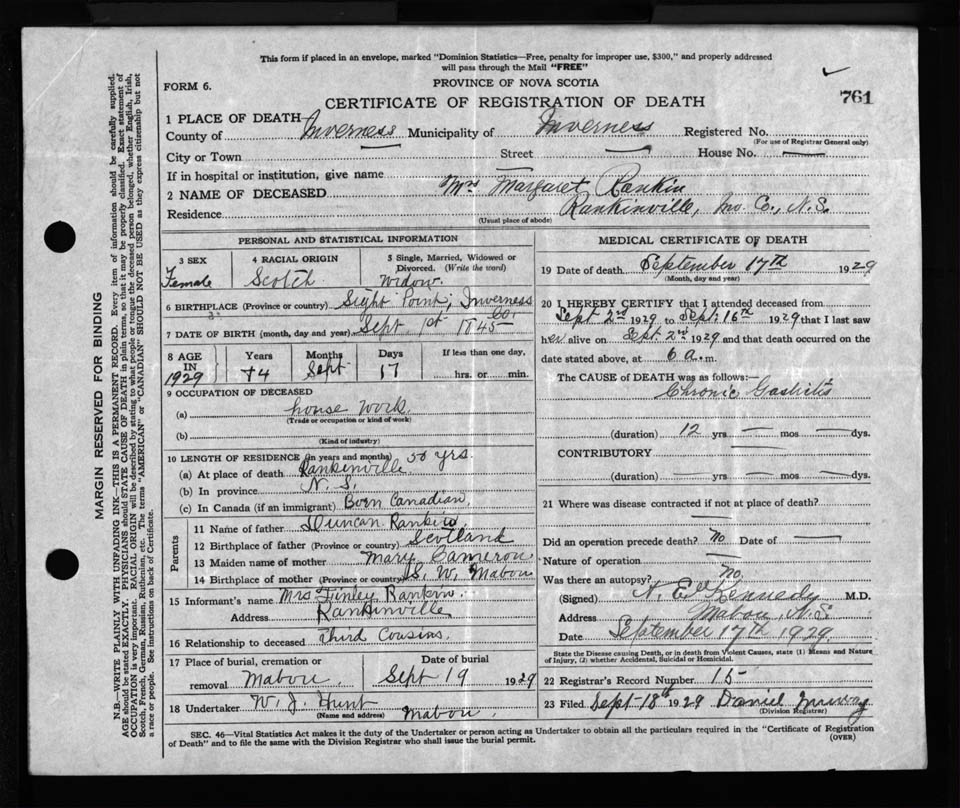 This form if placed in an envelope, marked "Dominion Statistics—Free, penalty for improper use, $300," and properly addressed
will pass through the Mail "FREE"
FORM 6.
PROVINCE OF NOVA SCOTIA
761
CERTIFICATE OF REGISTRATION OF DEATH
1 PLACE OF DEATH
County of Inverness Municipality of Inverness Registered No.
(For use of Registrar General only)
City or Town Street House No.
If in hospital or institution, give name
2 NAME OF DECEASED Mrs Margaret Rankin
Residence Rankinville, Inv. Co., N.S.
(Usual place of abode)
PERSONAL AND STATISTICAL INFORMATION
3 SEX 4 RACIAL ORIGIN 5 Single, Married, Widowed or
Divorced. (Write the word)
Female Scotch Widow.
6 BIRTHPLACE (Province or country) Sight Point, Inverness
Co.
7 DATE OF BIRTH (month, day and year) Sept 1st 1845
8 AGE Years Months Days If less than one day,
IN
1929 84 Sept 17 hrs. or min.
9 OCCUPATION OF DECEASED
(a) house work
(Trade or occupation or kind of work)
(b)
(Kind of industry)
10 LENGTH OF RESIDENCE (in years and months)
(a) At place of death Rankinville 50 yrs.
(b) In province N. S.
(c) In Canada (if an immigrant) Born Canadian
Parents
11 Name of father Duncan Rankin
12 Birthplace of father (Province or country) Scotland
13 Maiden name of mother Mary Cameron
14 Birthplace of mother (Province or country) S. W. Mabou
15 Informant's name Mrs Finley Rankin
Address Rankinville
16 Relationship to deceased Third Cousins.
17 Place of burial, cremation or Date of burial
removal Mabou Sept 19 1929
18 Undertaker W. J. Hunt
(Name and address) Mabou.
MEDICAL CERTIFICATE OF DEATH
19 Date of death September 17th 1929
(Month, day and year)
20 I HEREBY CERTIFY that I attended deceased from
Sept 2nd 1929 to Sept. 16th 1929 that I last saw
her alive on Sept. 2nd 1929 and that death occurred on the
date stated above, at 6 a.m.
The CAUSE OF DEATH was as follows:—
Chronic Gastritis
(duration) 12 yrs mos dys.
CONTRIBUTORY
(duration) yrs mos dys.
21 Where was disease contracted if not at place of death?
Did an operation precede death? No Date of
Nature of operation
Was there an autopsy? No.
(Signed) Kennedy M.D.
Address Mabou, N.S
Date September 17th 1929.
State the Disease causing Death, or in death from Violent Causes, state (1) Means and Nature
of Injury, (2) whether Accidental, Suicidal or Homicidal.
22 Registrar's Record Number 15
23 Filed Sept 18th 1929 Daniel
(Division Registrar)
SEC. 46—Vital Statistics Act makes it the duty of the Undertaker or person acting as Undertaker to obtain all the particulars required in the "Certificate of Registration
of Death" and to file the same with the Division Registrar who shall issue the burial permit.
(OVER)
MARGIN RESERVED FOR BINDING
N.B.—WRITE PLAINLY WITH UNFADING INK—THIS IS A PERMANENT RECORD. Every item of information should be carefully supplied.
AGE should be stated EXACTLY. PHYSICIANS should STATE CAUSE OF DEATH in plain terms, so that it may be properly classified. Exact statement of
OCCUPATION is very important. RACIAL ORIGIN will be described by stating to what people or tongue the deceased person belonged, whether English, Irish,
Scotch, French, German, Russian, Ruthenian, etc. The terms "AMERICAN" or "CANADIAN" SHOULD NOT BE USED as they express citizenship but not
a race or people. See instructions on back of Certificate.